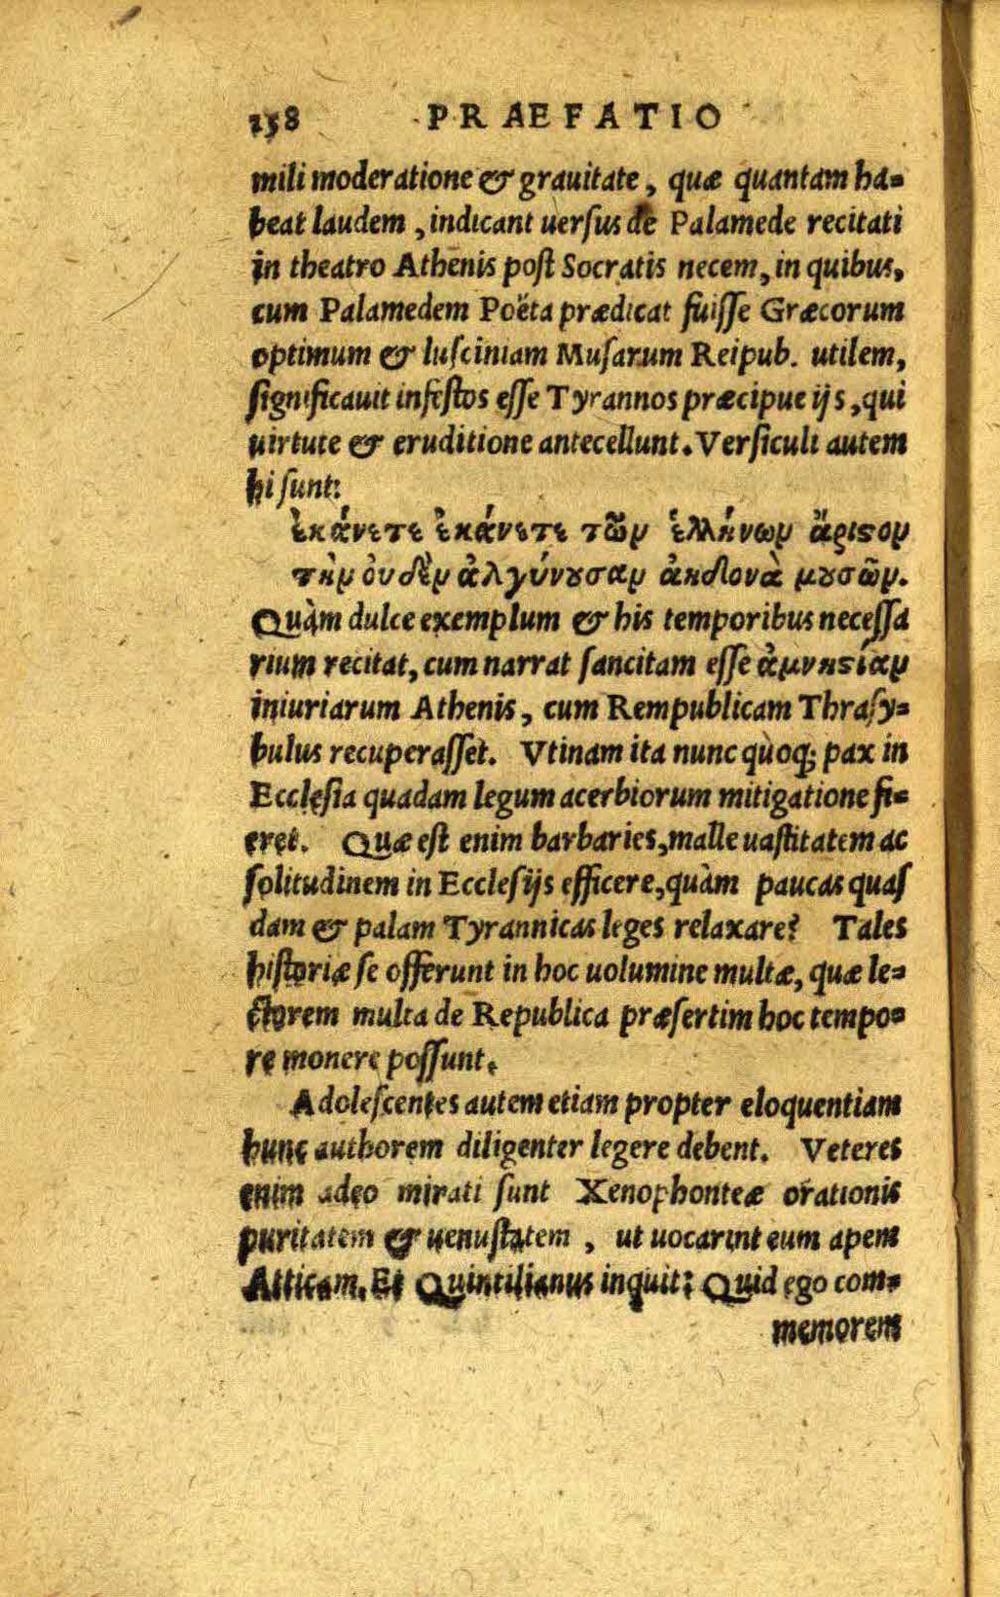 258 PRAEFATIO
mili moderatione & grauitate, quæ quantam ha=
beat laudem, indicant uersus de Palamede recitati
in theatro Athenis post Socratis necem, in quibus,
cum Palamedem Poëta prædicat fuisse Græcorum
optimum & lusciniam Musarum Reipub. utilem,
significauit infestos esse Tyrannos præcipue ijs, qui
uirtute & eruditione antecellunt. Versiculi autem
hi sunt:
ἐκάνετε ἐκάνετε τῶν ἑλλήνων ἄριστον
τὴν ὀυδὲν ἀλγύνουσαν ἀηδονὰ μουσῶν.
Quàm dulce exemplum & his temporibus necessa
rium recitat, cum narrat sancitam esse ἀμνηστίαν
iniuriarum Athenis, cum Rempublicam Thrasy=
bulus recuperasset. Vtinam ita nunc quoq; pax in
Ecclesia quadam legum acerbiorum mitigatione fi=
eret. Quæ est enim barbaries, malle uastitatem ac
solitudinem in Ecclesijs efficere, quàm paucas quas
dam & palam Tyrannicas leges relaxare? Tales
historiæ se offerunt in hoc uolumine multæ, quæ le=
ctorem multa de Republica præsertim hoc tempo=
re monere possunt.
Adolescentes autem etiam propter eloquentiam
hunc authorem diligenter legere debent. Veteres
enim adeo mirati sunt Xenophonteæ orationis
puritatem & uenustatem, ut uocarint eum apem
Atticam. Et Quintilianus inquit: Quid ego com=
memorem